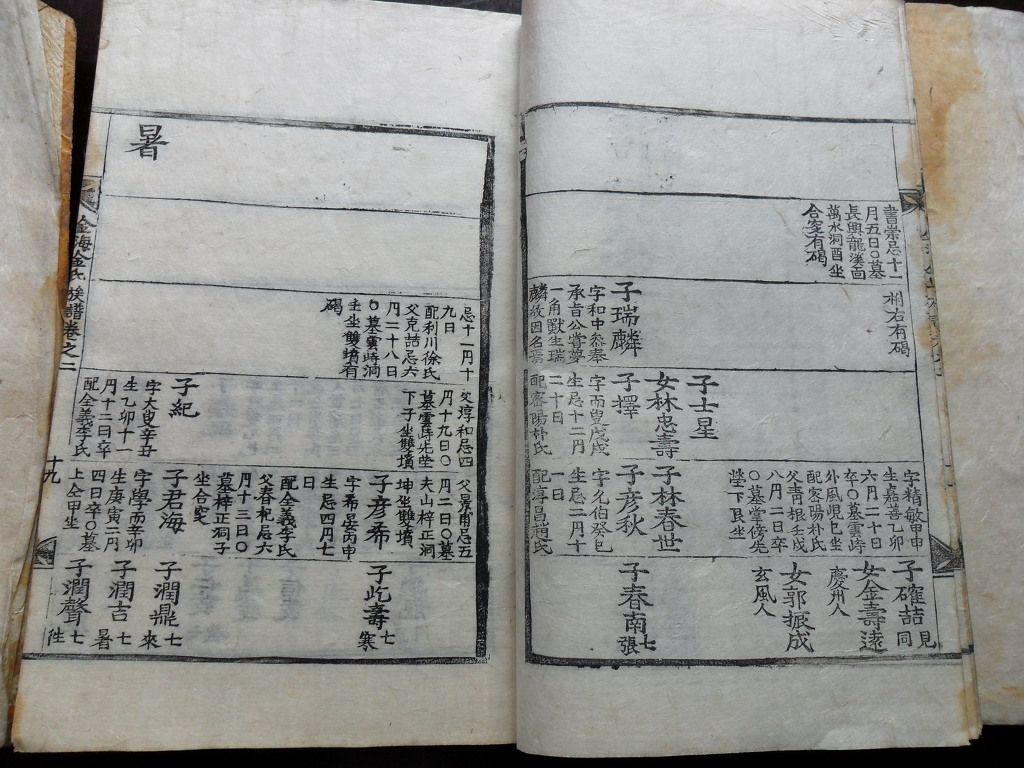 書崇忌十一
月五日○墓
長興龍溪面
萬水洞酉坐
合窆有碣
相右有碣
子瑞麟
字和中忝奉
承旨公嘗夢
一角獸生瑞
麟故因名焉
子士星
女林忠壽
子擇
字而叟戊戌
生忌十二月
二十日
配密陽朴氏
字精敏甲申
生嘉善乙卯
六月二十日
卒○墓雲峙
外風峴巳坐
配密陽朴氏
父壽根壬戌
八月二日卒
○墓堂傍先
塋下艮坐
子林春世
子彦秋
字允伯癸巳
生忌二月十
一日
配淳昌趙氏
子確喆 見同
女金壽遠
慶州人
女郭振成
玄風人
子春南 七張
忌十一月十
九日
配利川徐氏
父克誥忌六
月二十八日
○墓雲峙洞
壬坐雙墳有
碣
父淳和忌四
月十九日○
墓雲峙先塋
下子坐雙墳
子紀
字大叟辛丑
生乙卯十一
月十二日卒
配全義李氏
父景甫忌五
月二日○墓
夫山梓正洞
坤坐雙墳
子彦希
字希晏丙申
生忌四月七
日
配全義李氏
父春杞忌六
月十三日○
墓梓正洞子
坐合窆
子君海
字學而辛卯
生庚寅二月
四日卒○墓
上仝甲坐
子屹壽 七寒
子潤鼎 七來
子潤吉 七暑
子潤聲 七往
暑
金海金氏族譜卷之二
十九